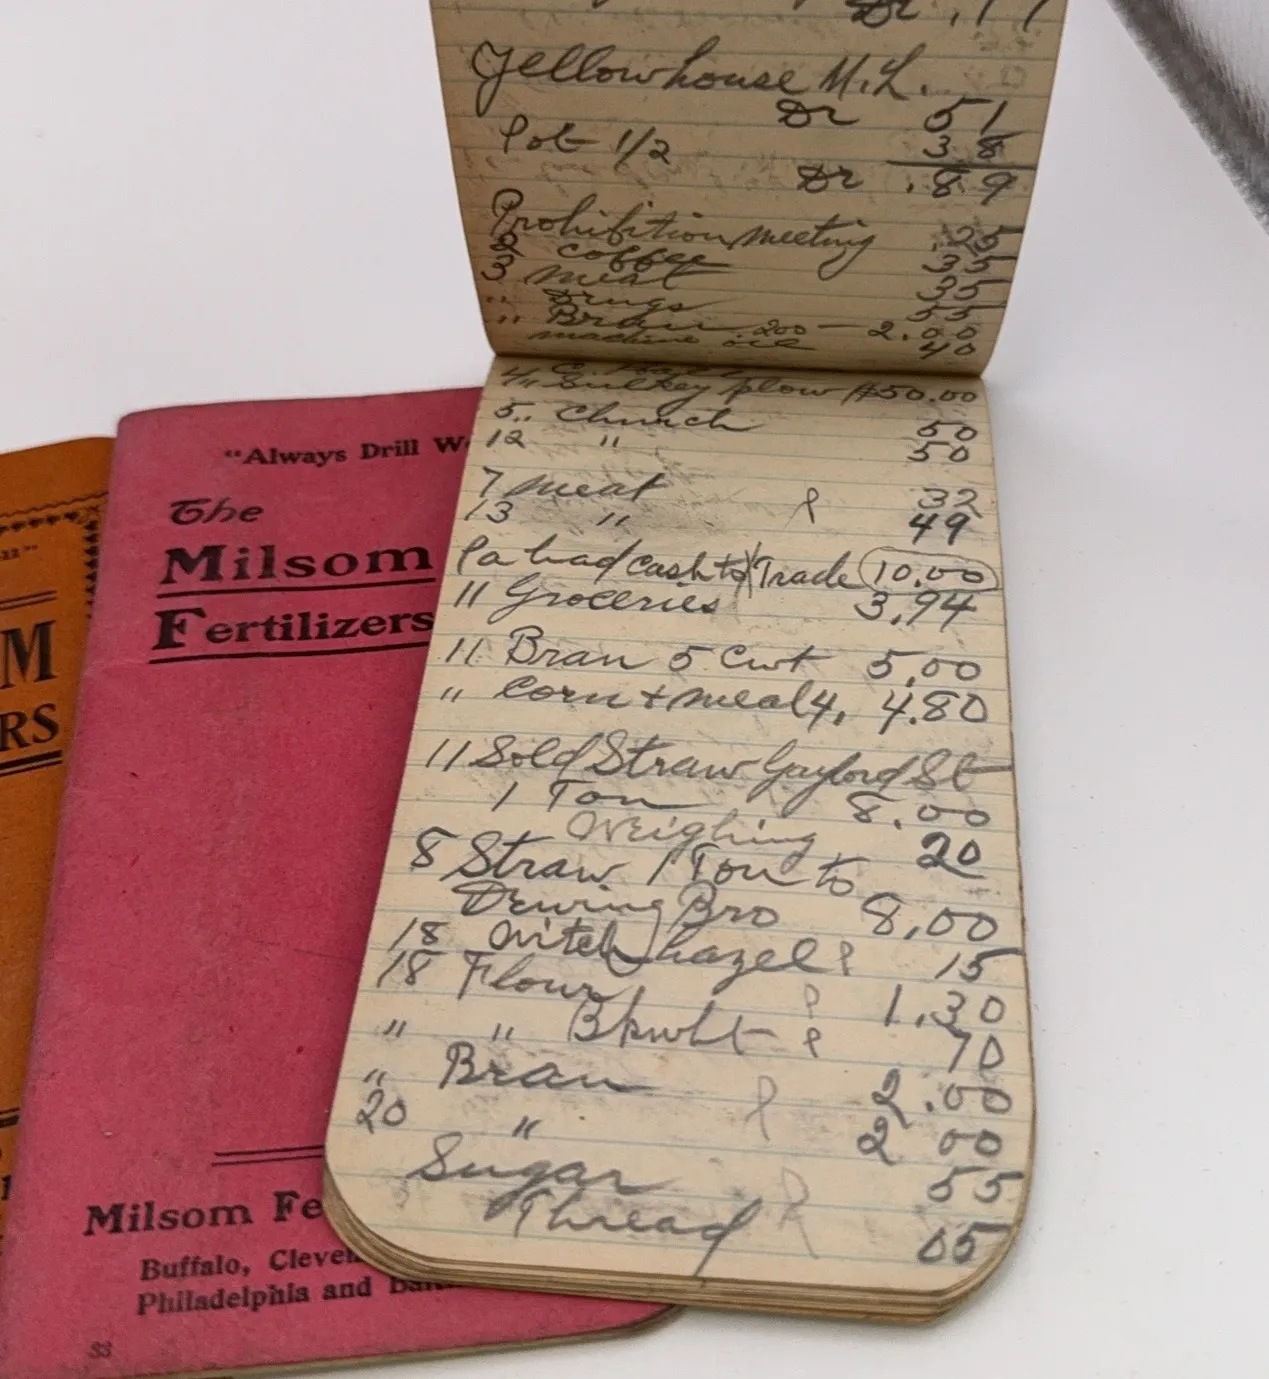 Dr .17
Yellowhouse M.L.
Dr 51
Pot 1/2 38
Dr .89
Prohibition meeting .25
2 coffee 35
3 meat 35
" Drugs 55
" Bran 200 — 2.00
machine oil 40
4 C.
" Sulkey plow $50.00
5 " Church 50
12 " 50
7 meat 32
13 " 49
Pa had cash to Trade 10.00
11 Groceries 3.94
11 Bran 5 Cwt 5.00
" Corn + meal 4, 4.80
11 Sold Straw Gaylord St
1 Ton 8.00
Weighing 20
8 Straw 1 Ton to
Dewing Bro 8.00
18 Witch hazel P 15
18 Flour P 1.30
" " Bkwht P 70
" Bran 2.00
20 " P 2 00
Sugar 55
Thread 05
"Always Drill W
The
Milsom
Fertilizers
Milsom Fe
Buffalo, Clevel
Philadelphia and Bal
33
M
RS